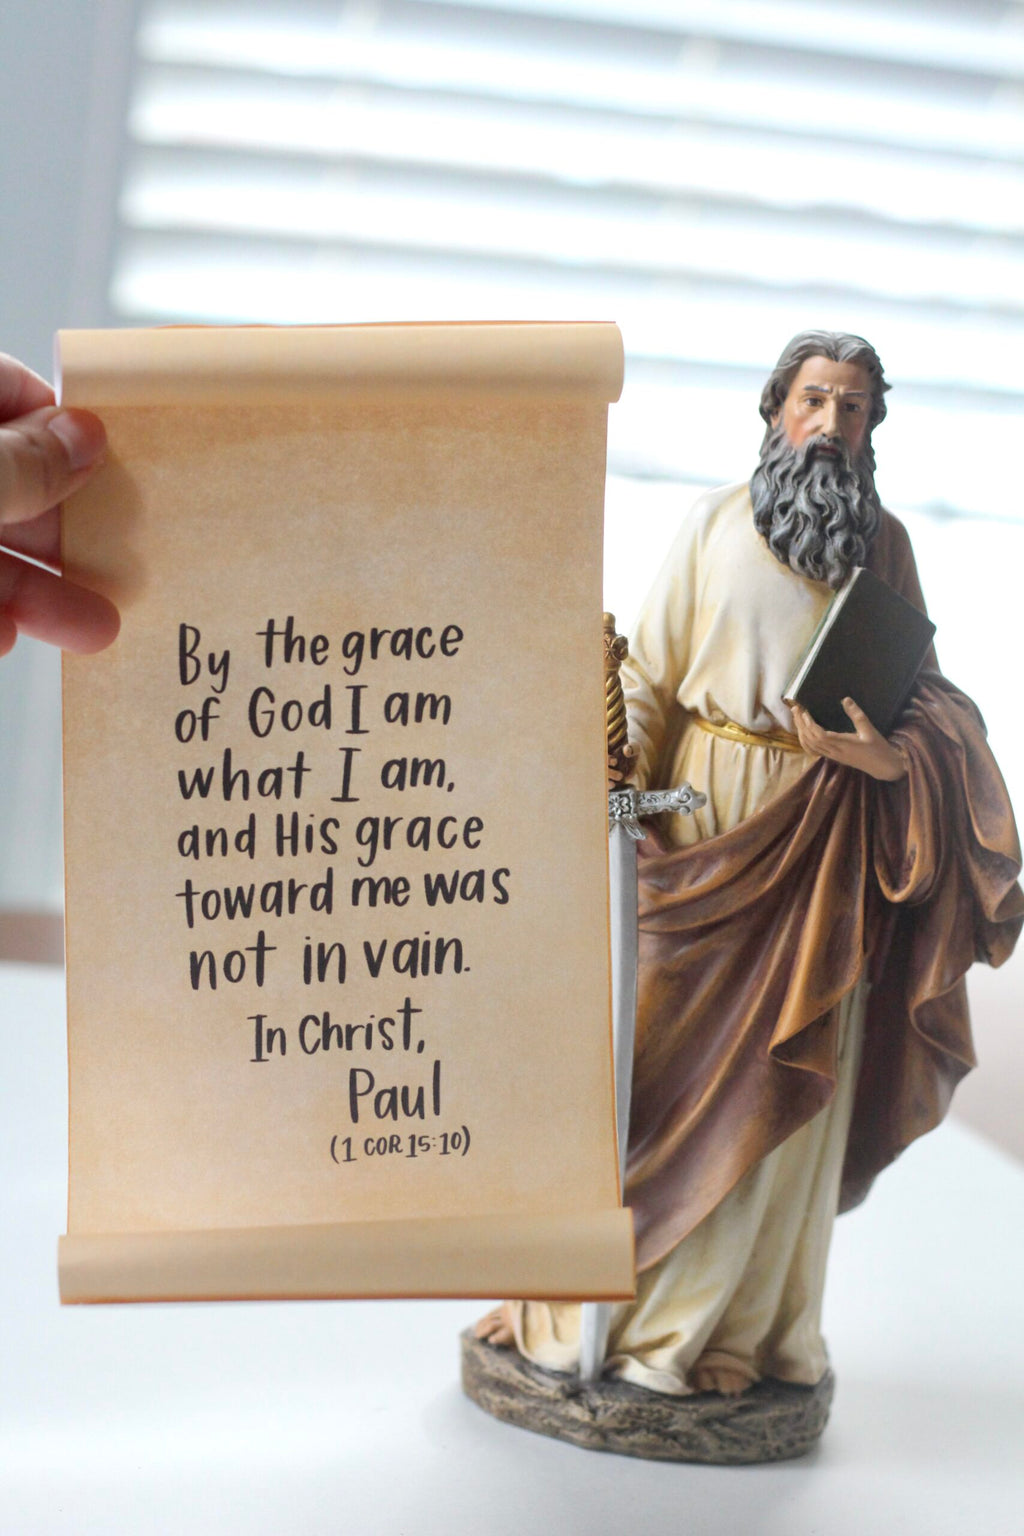 By the grace
of God I am
what I am,
and His grace
toward me was
not in vain.
In Christ,
Paul
(1 COR 15:10)